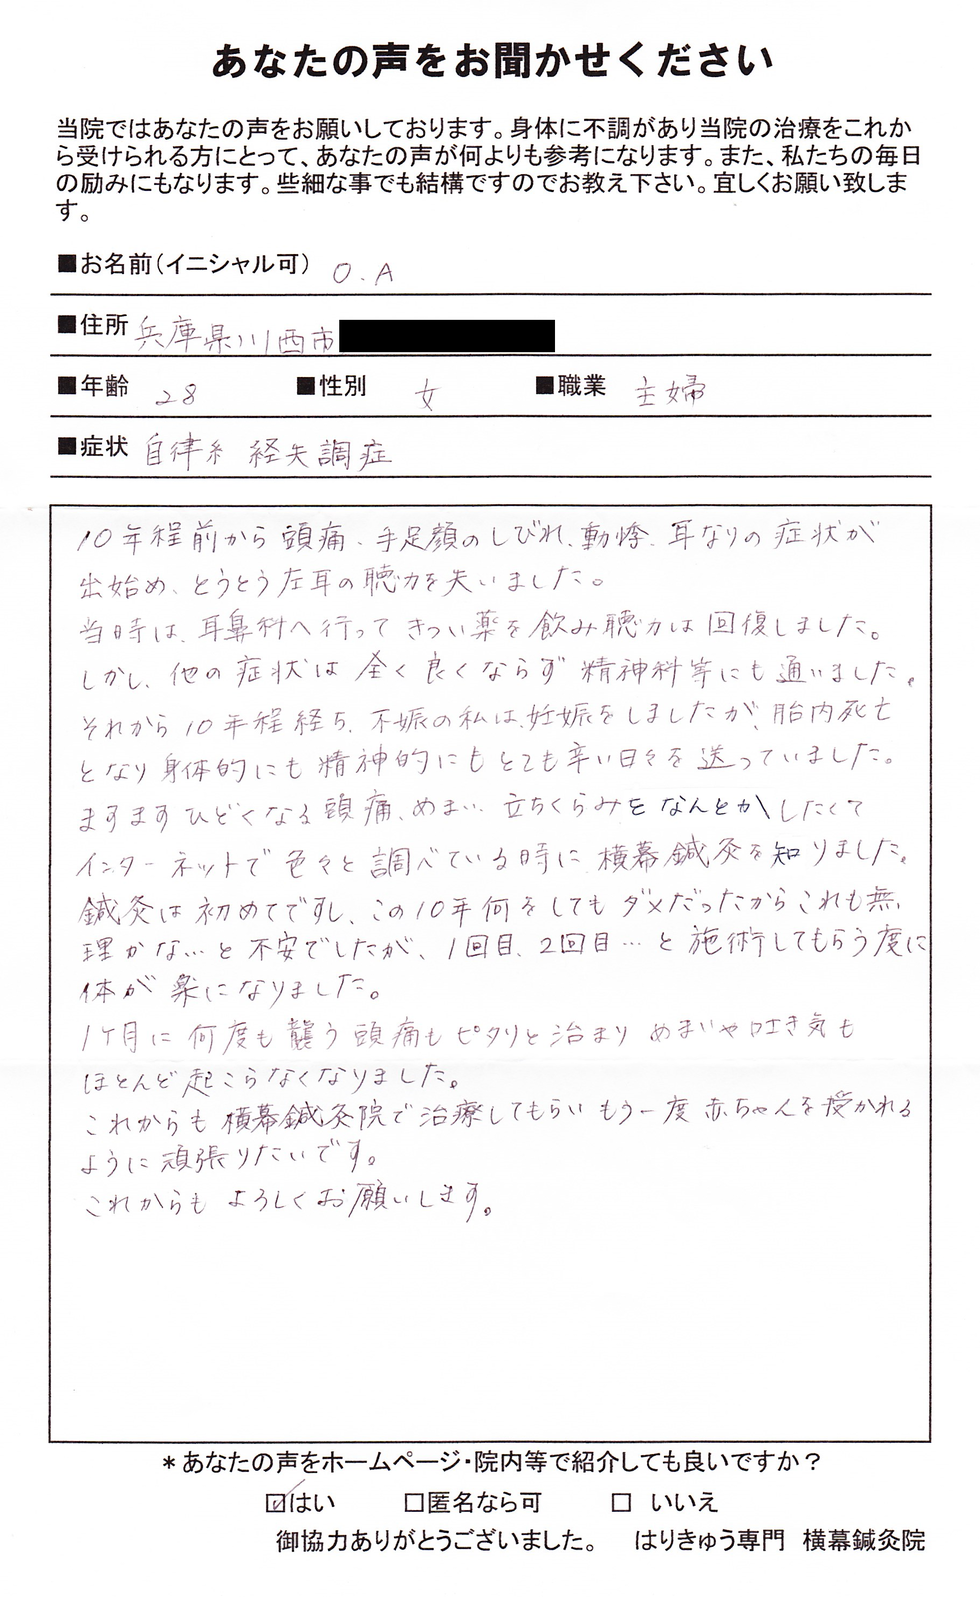 あなたの声をお聞かせください
当院ではあなたの声をお願いしております。身体に不調があり当院の治療をこれか
ら受けられる方にとって、あなたの声が何よりも参考になります。また、私たちの毎日
の励みにもなります。些細な事でも結構ですのでお教え下さい。宜しくお願い致しま
す。
■お名前(イニシャル可) O.A
■住所 兵庫県川西市
■年齢 28 ■性別 女 ■職業 主婦
■症状 自律神経失調症
10年程前から頭痛、手足顔のしびれ、動悸、耳なりの症状が
出始め、とうとう左耳の聴力を失いました。
当時は、耳鼻科へ行ってきつい薬を飲み聴力は回復しました。
しかし、他の症状は全く良くならず精神科等にも通いました。
それから10年程経ち、不妊の私は、妊娠をしましたが、胎内死亡
となり身体的にも精神的にもとても辛い日々を送っていました。
ますますひどくなる頭痛、めまい、立ちくらみをなんとかしたくて
インターネットで色々と調べている時に横幕鍼灸を知りました。
鍼灸は初めてですし、この10年何をしてもダメだったからこれも無
理かな…と不安でしたが、1回目、2回目…と施術してもらう度に
体が楽になりました。
1ヶ月に何度も襲う頭痛もピタリと治まりめまいや吐き気も
ほとんど起こらなくなりました。
これからも横幕鍼灸院で治療してもらいもう一度赤ちゃんを授かれる
ように頑張りたいです。
これからもよろしくお願いします。
*あなたの声をホームページ・院内等で紹介しても良いですか?
☑はい □匿名なら可 □ いいえ
御協力ありがとうございました。 はりきゅう専門 横幕鍼灸院